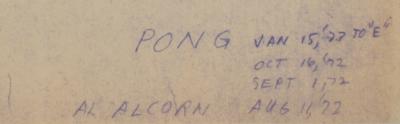 PONG JAN 15, '73 TO "E"
OCT 16, '72
SEPT 1, 72
AL ALCORN AUG 11, 72